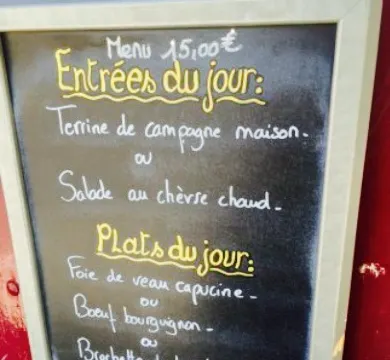 Menu 15,00€
Entrées du jour:
Terrine de campagne maison.
ou
Salade au chèvre chaud.
Plats du jour:
Foie de veau capucine.
ou
Boeuf bourguignon.
ou
Brochette